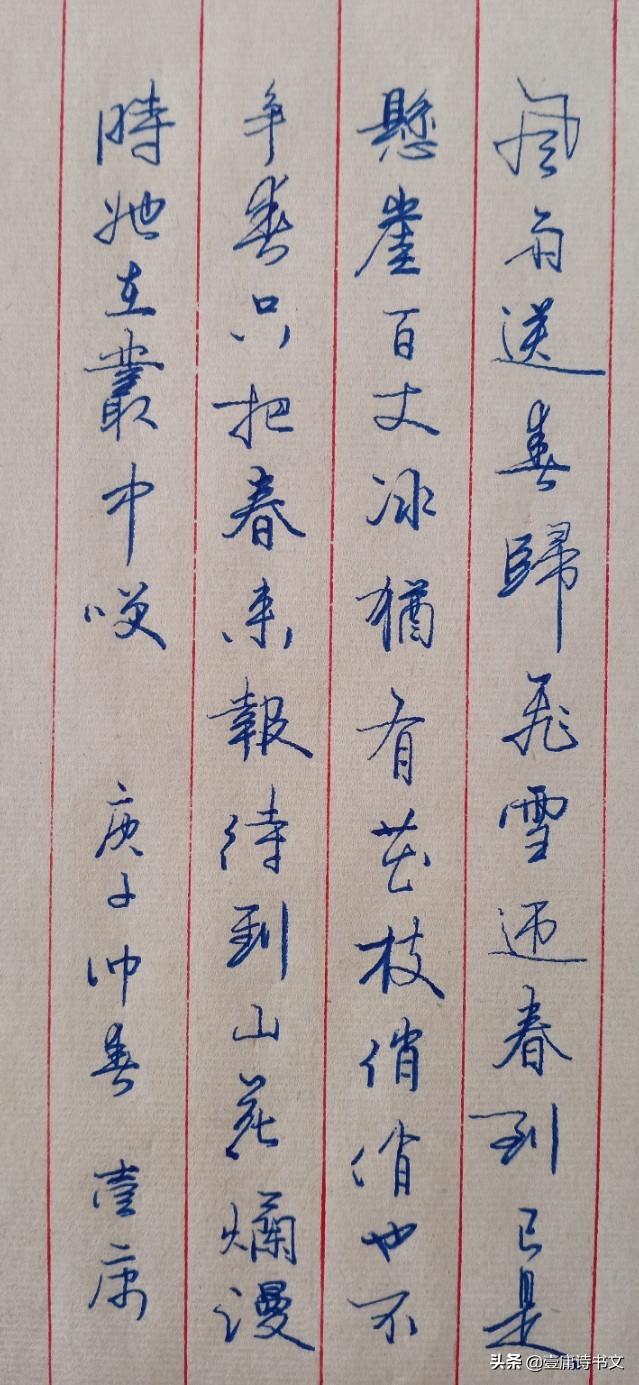 风雨送春歸飛雪迎春到已是
懸崖百丈冰猶有花枝俏俏也不
争春只把春来報待到山花爛漫
時她在叢中笑 庚子仲春 壹庸
头条 @壹庸诗书文